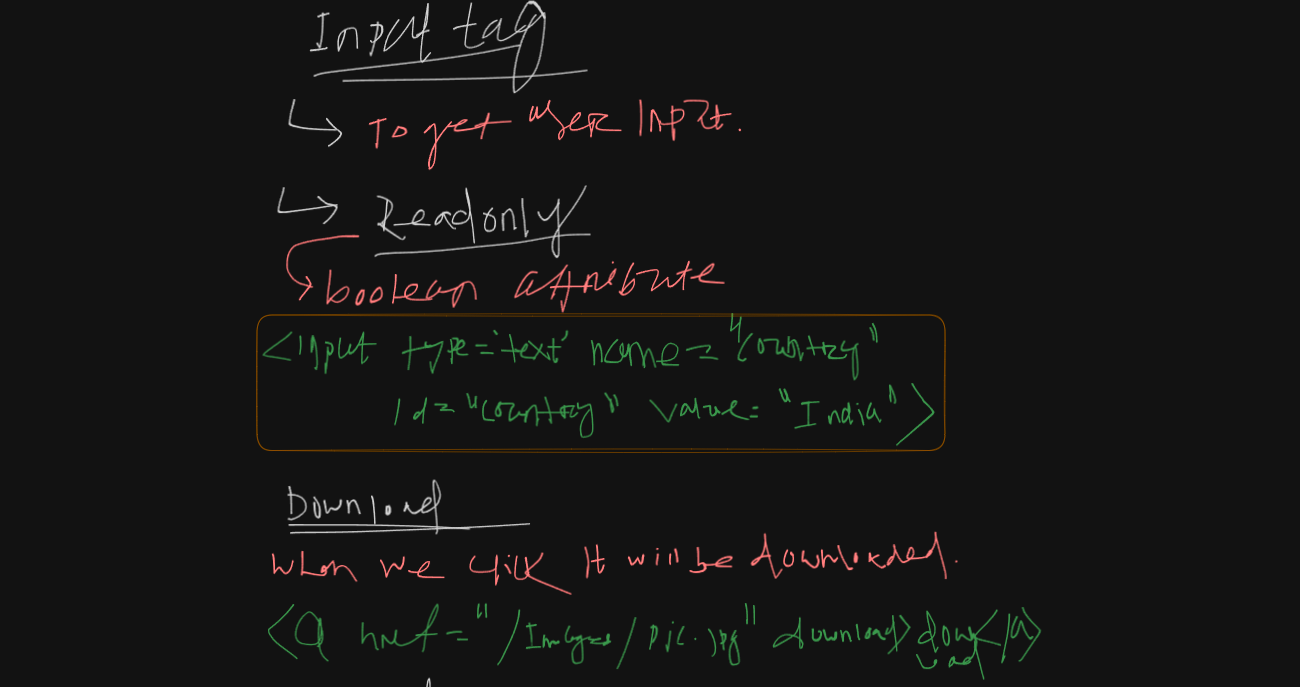 Input tag
To get user Input.
Readonly
boolean attribute
<input type='text' name="Country"
id="Country" value="India">
Download
when we click It will be downloaded.
<a href="/Images/pic.jpg" download>download</a>